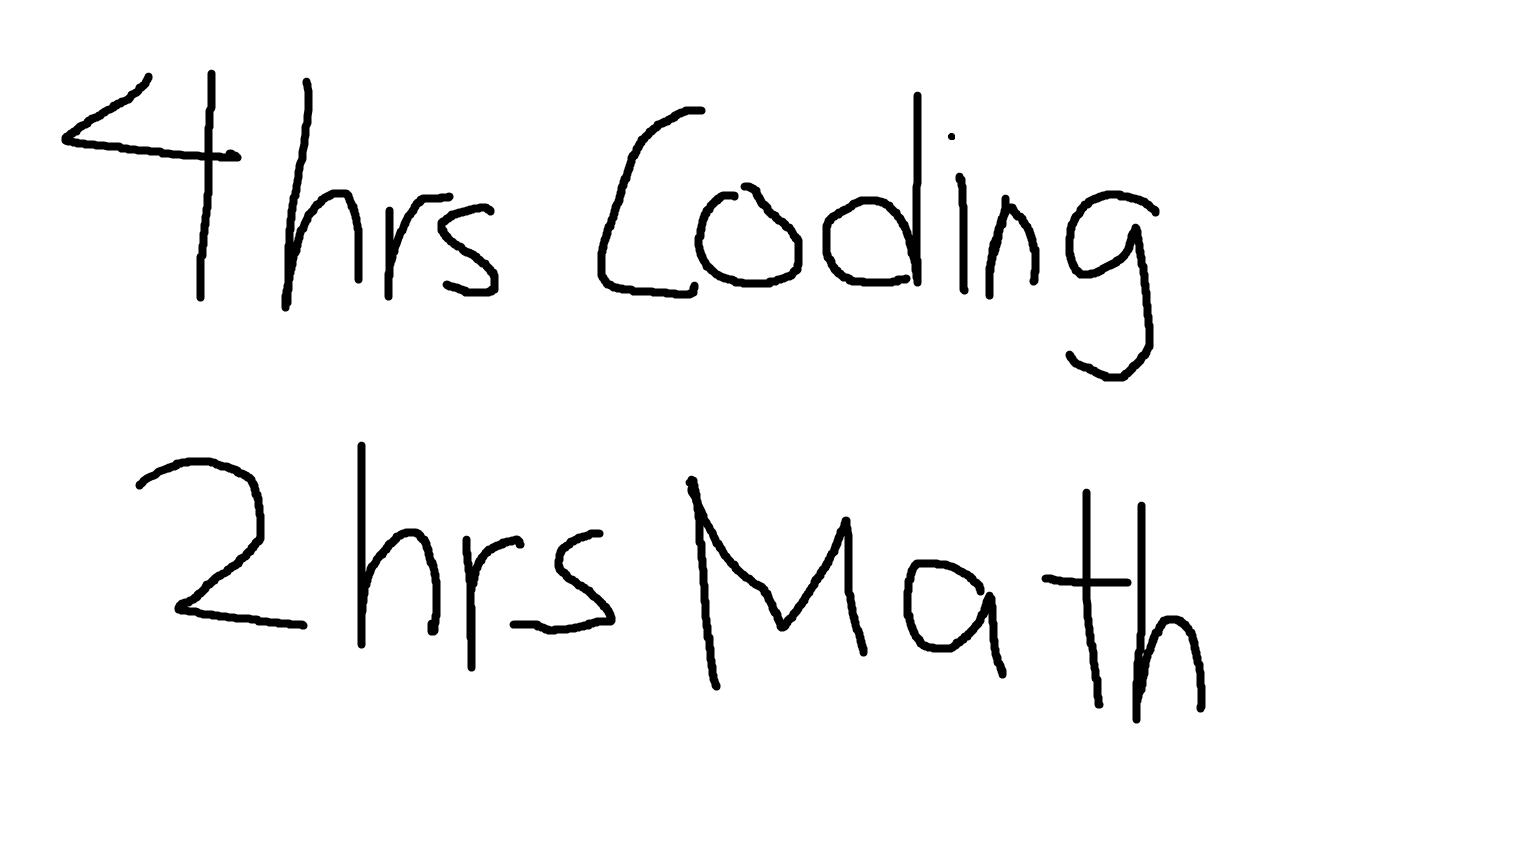 4hrs Coding
2hrs Math